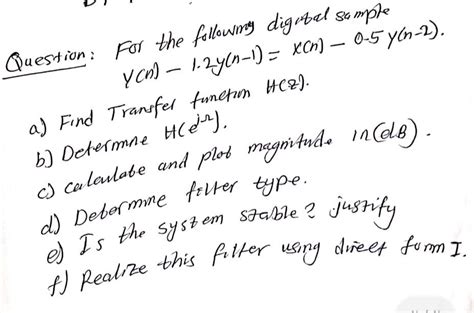 Question: For the following digital sample
y(n) - 1.2y(n-1) = x(n) - 0.5 y(n-2).
a) Find Transfer function H(z).
b) Determne H(e^jΩ).
c) calculate and plot magnitude in (dB).
d) Determne filter type.
e) Is the system stable? justify
f) Realize this filter using direct form I.